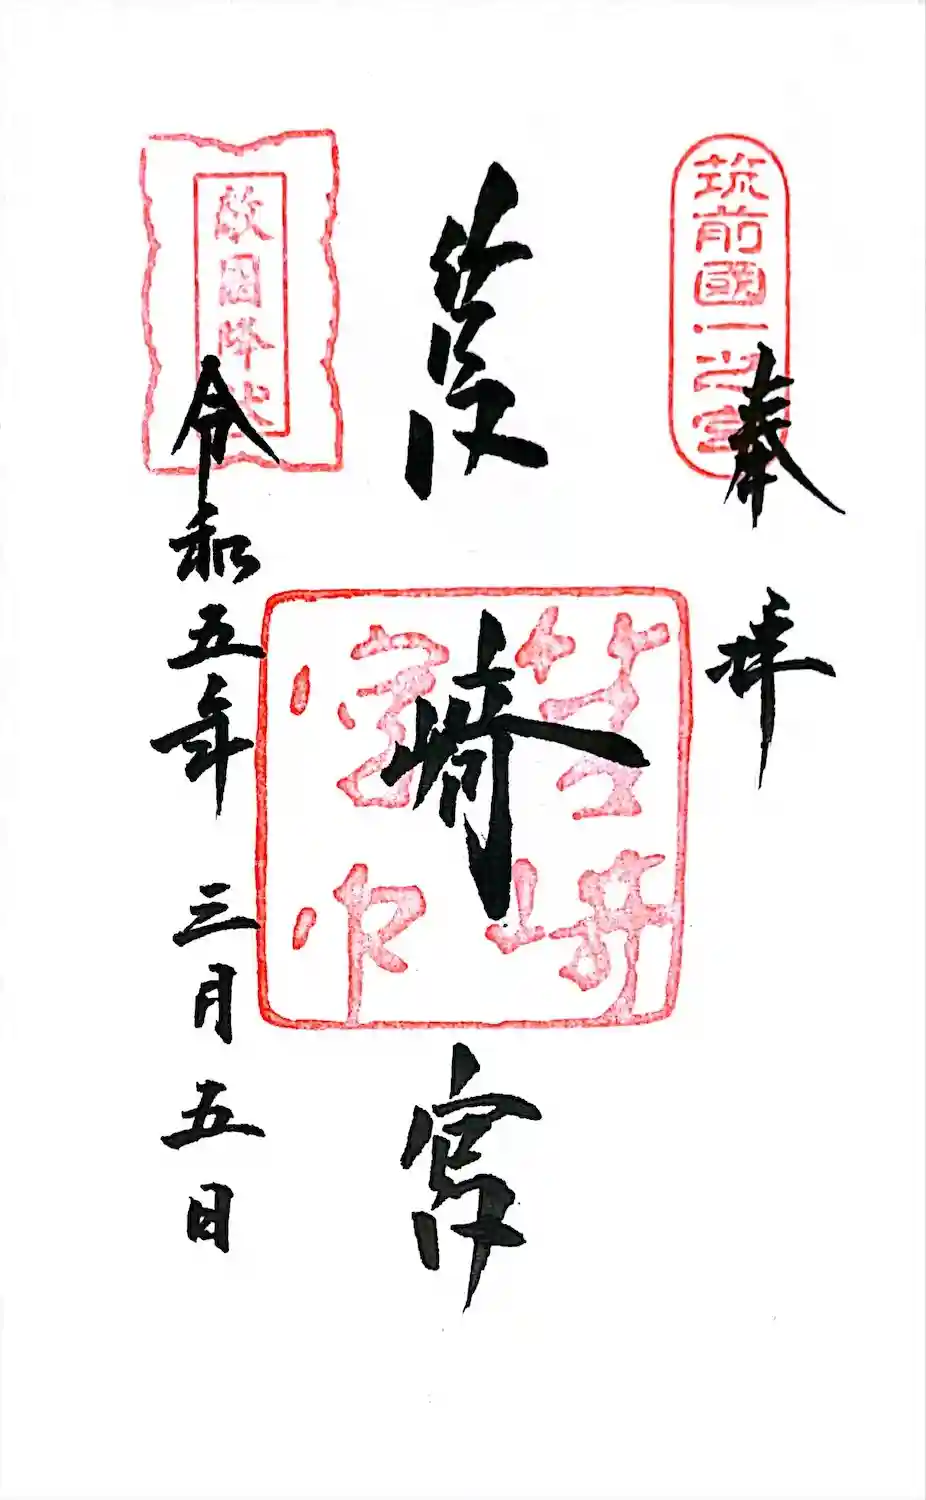 筑前國一之宮
奉拝
筥崎宮
筥崎宮印
敵国降伏
令和五年三月五日